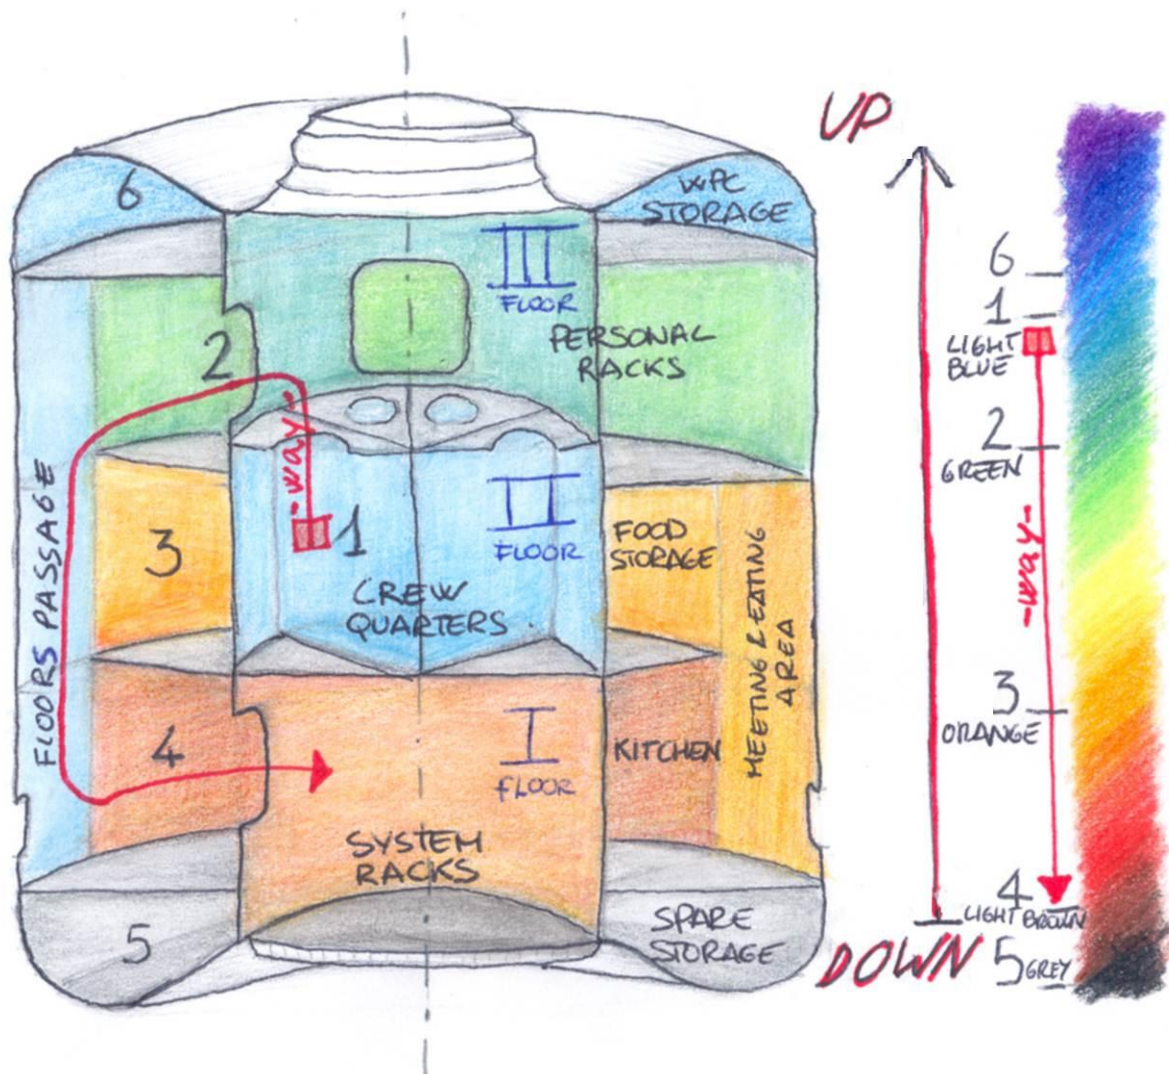 UP
6
WPC
STORAGE
III
FLOOR
2
PERSONAL
RACKS
-way-
FLOORS PASSAGE
3
1
II
FLOOR
CREW
QUARTERS
FOOD
STORAGE
MEETING & EATING
AREA
4
I
FLOOR
KITCHEN
SYSTEM
RACKS
5
SPARE
STORAGE
6
1
LIGHT
BLUE
2
GREEN
-way-
3
ORANGE
4
LIGHT BROWN
DOWN
5 GREY